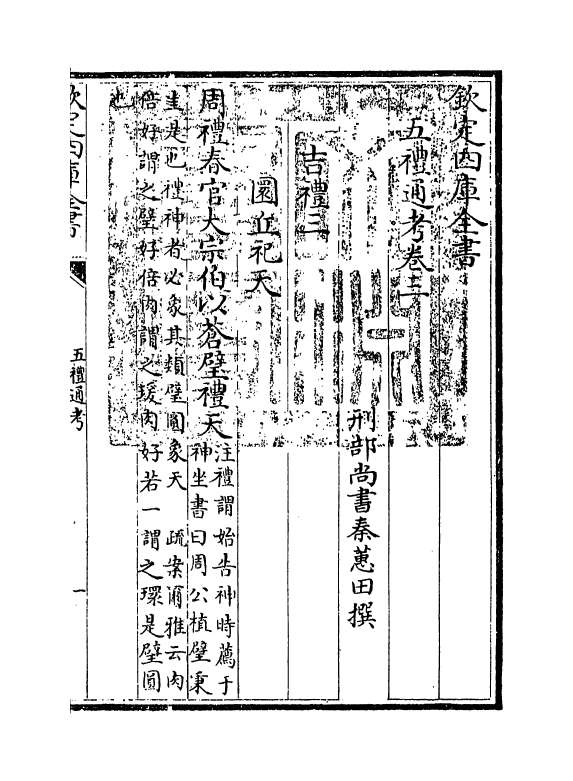 欽定四庫全書
五禮通考卷三
刑部尚書秦蕙田撰
吉禮三
圜丘祀天
周禮春官大宗伯以蒼璧禮天
注禮謂始告神時薦于
神坐書曰周公植璧秉
圭是也禮神者必象其類璧圜象天 疏案爾雅云肉
倍好謂之璧好倍肉謂之瑗肉好若一謂之環是璧圜
也
欽定四庫全書
五禮通考
一